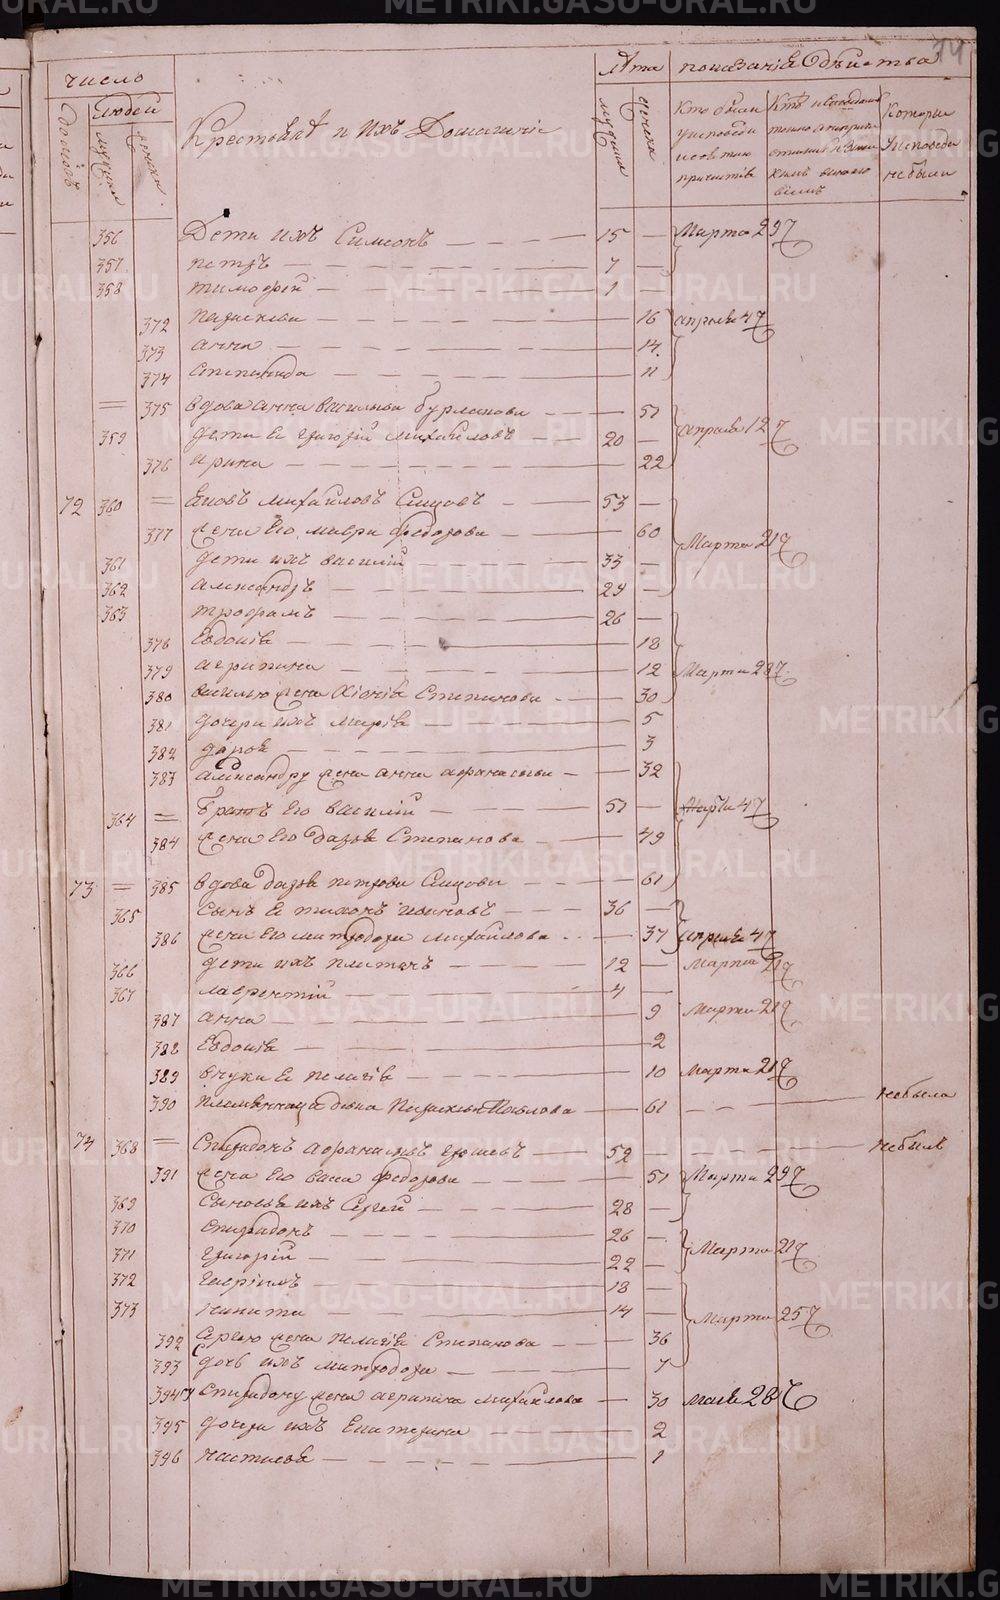 14
число
лѣта показанiѣ Обытства
домовъ людей мужеска женска
Крестьянѣ и Ихъ Домашнiе
мужеска женска
Кто были уисповеди исвятаго причастiѣ
Которыи уисповеди небыли
356 Дети ихъ Симеонъ 15 Марта 29
357 петръ 7
358 тимофей 1
372 парасковья 16 апреля 4
373 анна 14
374 степанида 11
375 вдова анна васильева бурлакова 51
359 дети Ея григорiй михайловъ 20 апреля 12
376 ирина 22
72 360 Iаковъ михайловъ Сысоевъ 53
377 жена Его мавра федорова 60 Марта 21
361 дети ихъ василiй 33
362 александръ 29
363 трофимъ 26
378 Евдокiя 18
379 агрипина 12 Марта 28
380 василью жена Хiонiя Степанова 30
381 дочери ихъ марiя 5
382 дарья 3
383 александру жена анна афанасьева 32
364 братъ Его василiй 51 Марта 4
384 жена Его дарья Степанова 49
73 385 вдова дарья петрова Сысоева 61
365 сынъ Ея тихонъ Iвановъ 36
386 жена Его митродора михайлова 37 апреля 4
366 дети ихъ платонъ 12 Марта 21
367 лаврентiй 4
387 анна 9 Марта 21
388 Евдокiя 2
389 внука Ея пелагiя 10 Марта 21
390 племянница девка Парасковья Павлова 61 небыла
74 368 Спиридонъ афанасьевъ 52 небылъ
391 жена Его васса федорова 51 Марта 29
369 Сыновья ихъ Сергей 28
370 Спиридонъ 26
371 григорiй 22 Марта 21
372 гаврiилъ 18
373 никита 14 Марта 25
392 Сергею жена пелагiя Степанова 36
393 дочь ихъ митродора 7
394 Спиридону жена агрипина михайлова 30 маия 28
395 дочери ихъ Екатерина 2
396 настасья 1
METRIKI.GASO-URAL.RU